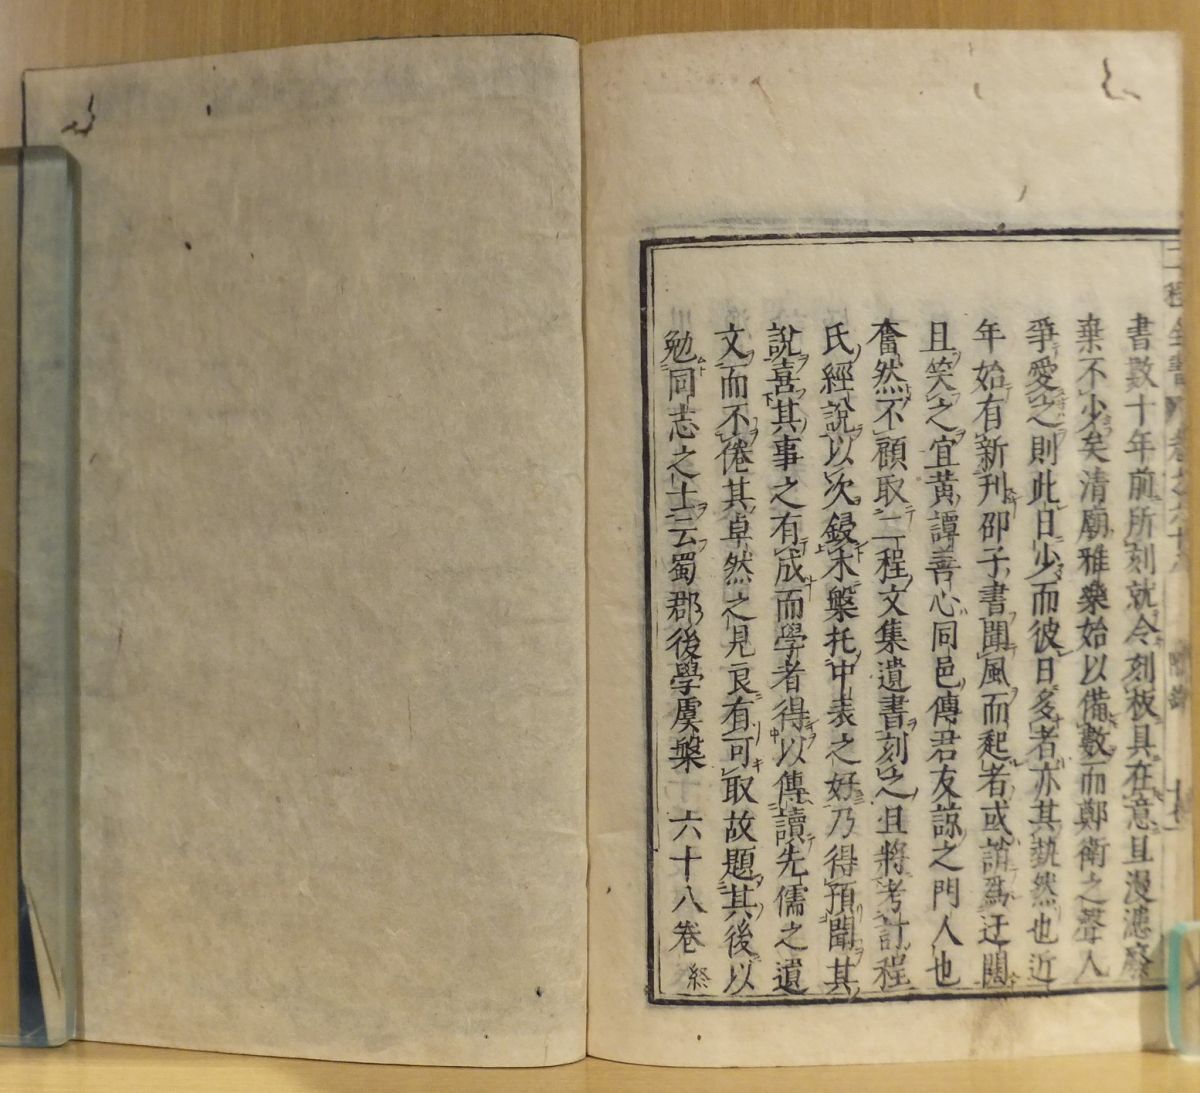 二程全書 卷之六十八 附錄
書數十年前所刻就令刻板具在意且漫漶廢
棄不少矣清廟雅樂始以備數而鄭衛之聲人
爭愛之則此日少而彼日多者亦其埶然也近
年始有新刊邵子書聞風而起者或誚爲迂闊
且笑之宜黃譚善心同邑傳君友諒之門人也
奮然不顧取二程文集遺書刻之且將考訂程
氏經說以次鋟木槃托中表之好乃得預聞其
說喜其事之有成而學者得以傳讀先儒之遺
文而不倦其卓然之見良有可取故題其後以
勉同志之士云蜀郡後學虞槃 六十八卷 終